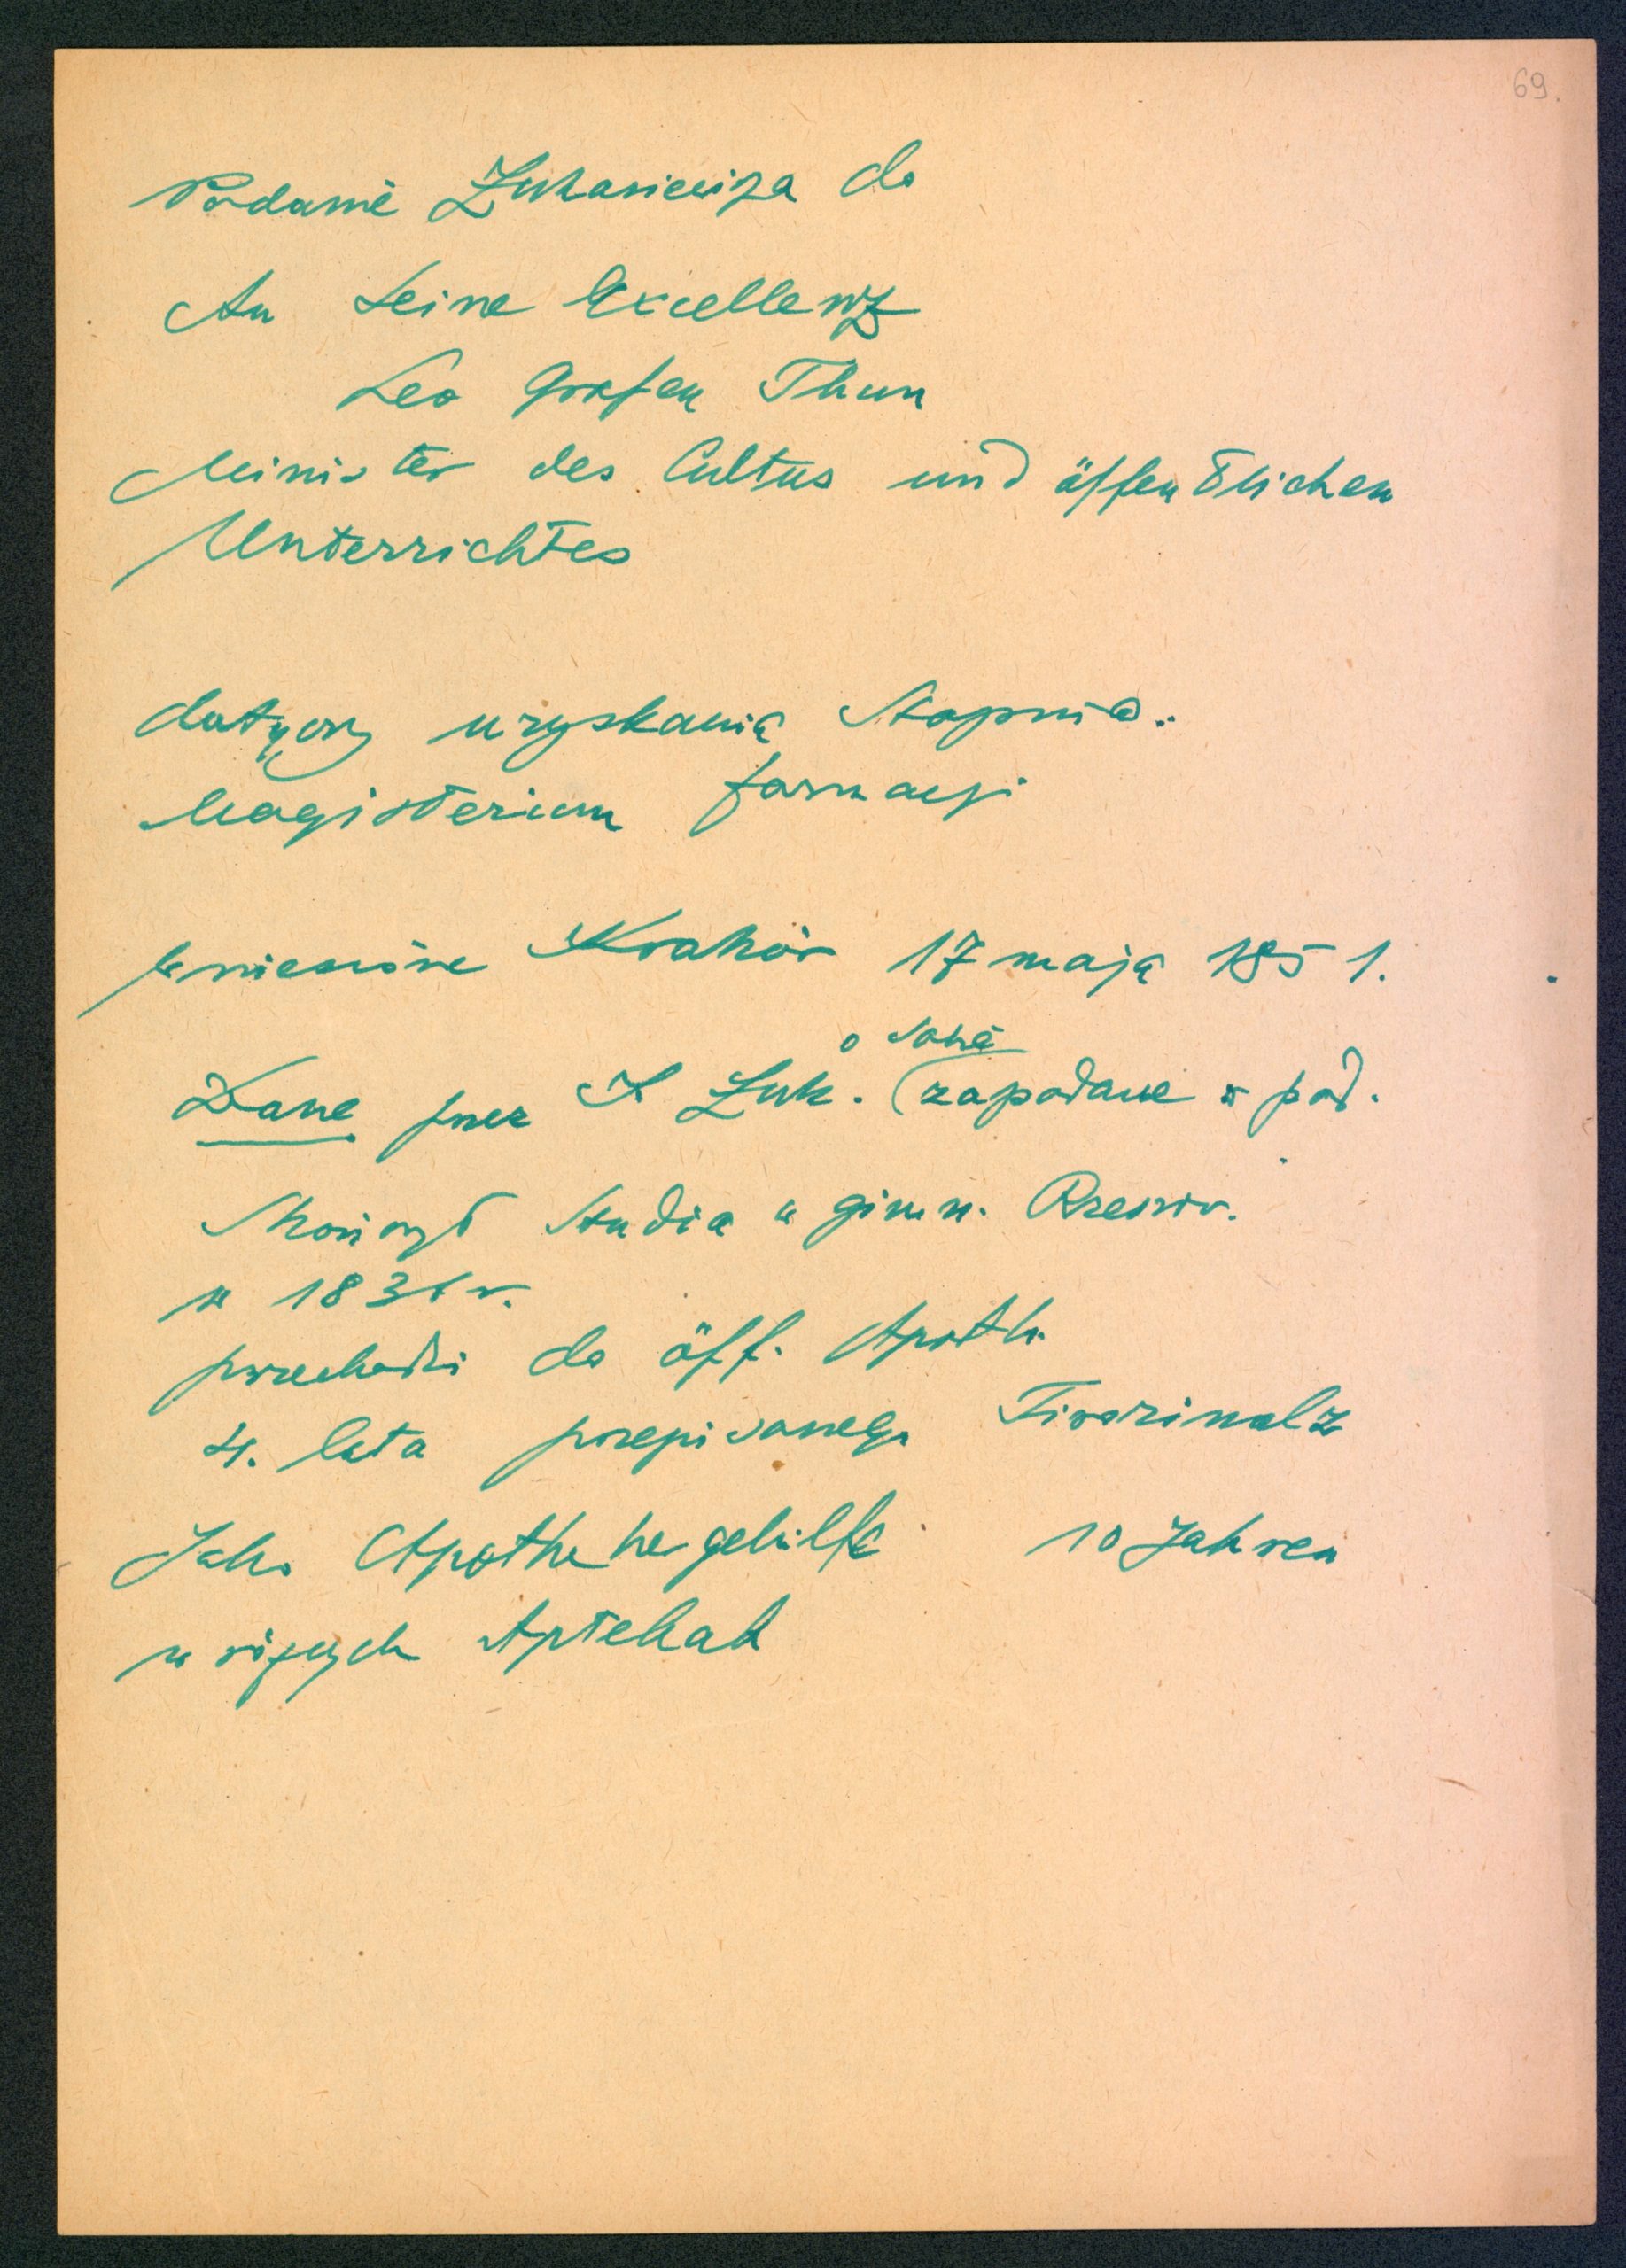 69.
Podanie Łukasiewicza do
An Seine Excellenz
Leo Grafen Thun
Minister des Cultus und öffentlichen
Unterrichtes
dotyczy uzyskania Stopnia..
Magisterium farmacji
wniesione Kraków 17 maja 1851.
o sobie
Dane przez I Łuk. (zapodane w pod.
Skończył Studia w gimn. Rzeszow.
w 183 r.
przechodzi do öff. Apoth.
4. lata przepisanego
Jako Apothekergehilfe 10 Jahren
w różnych Aptekach